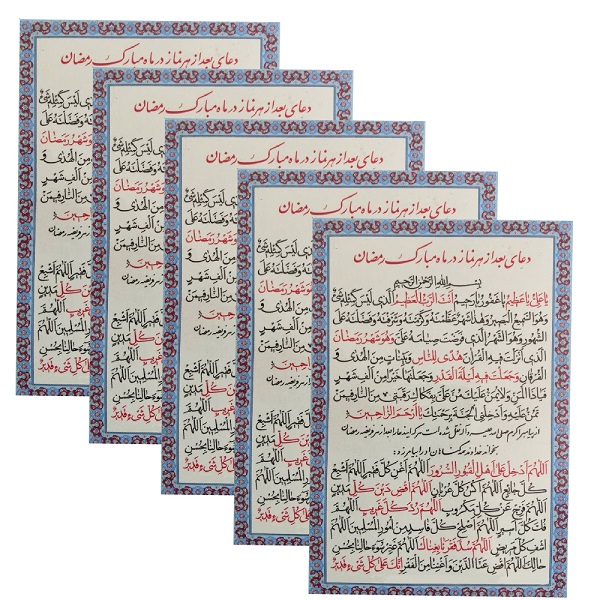 دعای بعد از هر نماز در ماه مبارک رمضان
دعای بعد از هر نماز در ماه مبارک رمضان
دعای بعد از هر نماز در ماه مبارک رمضان
دعای بعد از هر نماز در ماه مبارک رمضان
دعای بعد از هر نماز در ماه مبارک رمضان
بسم الله الرحمن الرحیم
یا عَلِیُّ یا عَظیمُ یا غَفُورُ یا رَحیمُ اَنْتَ الرَّبُّ الْعَظیمُ الَّذی لَیْسَ کَمِثْلِهِ شَیْءٌ
وَهُوَ السَّمیعُ الْبَصیرُ وَهذا شَهْرٌ عَظَّمْتَهُ وَکَرَّمْتَهُ وَشَرَّفْتَهُ وَفَضَّلْتَهُ عَلَی
الشُّهُورِ وَهُوَ الشَّهْرُ الَّذی فَرَضْتَ صِیامَهُ عَلَیَّ وَهُوَ شَهْرُ رَمَضانَ
الَّذی اَنْزَلْتَ فیهِ الْقُرْآنَ هُدیً لِلنّاسِ وَبَیِّناتٍ مِنَ الْهُدی وَ
الْفُرْقانِ وَجَعَلْتَ فیهِ لَیْلَةَ الْقَدْرِ وَجَعَلْتَها خَیْراً مِنْ اَلْفِ شَهْرٍ
فَیا ذَا الْمَنِّ وَلا یُمَنُّ عَلَیْکَ مُنَّ عَلَیَّ بِفَکاکِ رَقَبَتی مِنَ النّارِ فیمَنْ
تَمُنُّ عَلَیْهِ وَاَدْخِلْنِی الْجَنَّةَ بِرَحْمَتِکَ یا اَرْحَمَ الرّاحِمینَ
از پیامبر اکرم شده است هر که این دعا را بعد از هر فریضه رمضان
بخواند خداوند گناهان او را بیامرزد:
اَللّهُمَّ اَدْخِلْ عَلی اَهْلِ الْقُبُورِ السُّرُورَ اَللّهُمَّ اَغْنِ کُلَّ فَقیرٍ اَللّهُمَّ اَشْبِعْ
کُلَّ جائِعٍ اَللّهُمَّ اکْسُ کُلَّ عُرْیانٍ اَللّهُمَّ اقْضِ دَیْنَ کُلِّ مَدینٍ
اَللّهُمَّ فَرِّجْ عَنْ کُلِّ مَکْرُوبٍ اَللّهُمَّ رُدَّ کُلَّ غَریبٍ اَللّهُمَّ
فُکَّ کُلَّ اَسیرٍ اَللّهُمَّ اَصْلِحْ کُلَّ فاسِدٍ مِنْ اُمُورِ الْمُسْلِمینَ اَللّهُمَّ
اشْفِ کُلَّ مَریضٍ اَللّهُمَّ سُدَّ فَقْرَنا بِغِناکَ اَللّهُمَّ غَیِّرْ سُوءَ حالِنا بِحُسْنِ
حالِکَ اَللّهُمَّ اقْضِ عَنَّا الدَّیْنَ وَاَغْنِنا مِنَ الْفَقْرِ اِنَّکَ عَلی کُلِّ شَیْءٍ قَدیرٌ